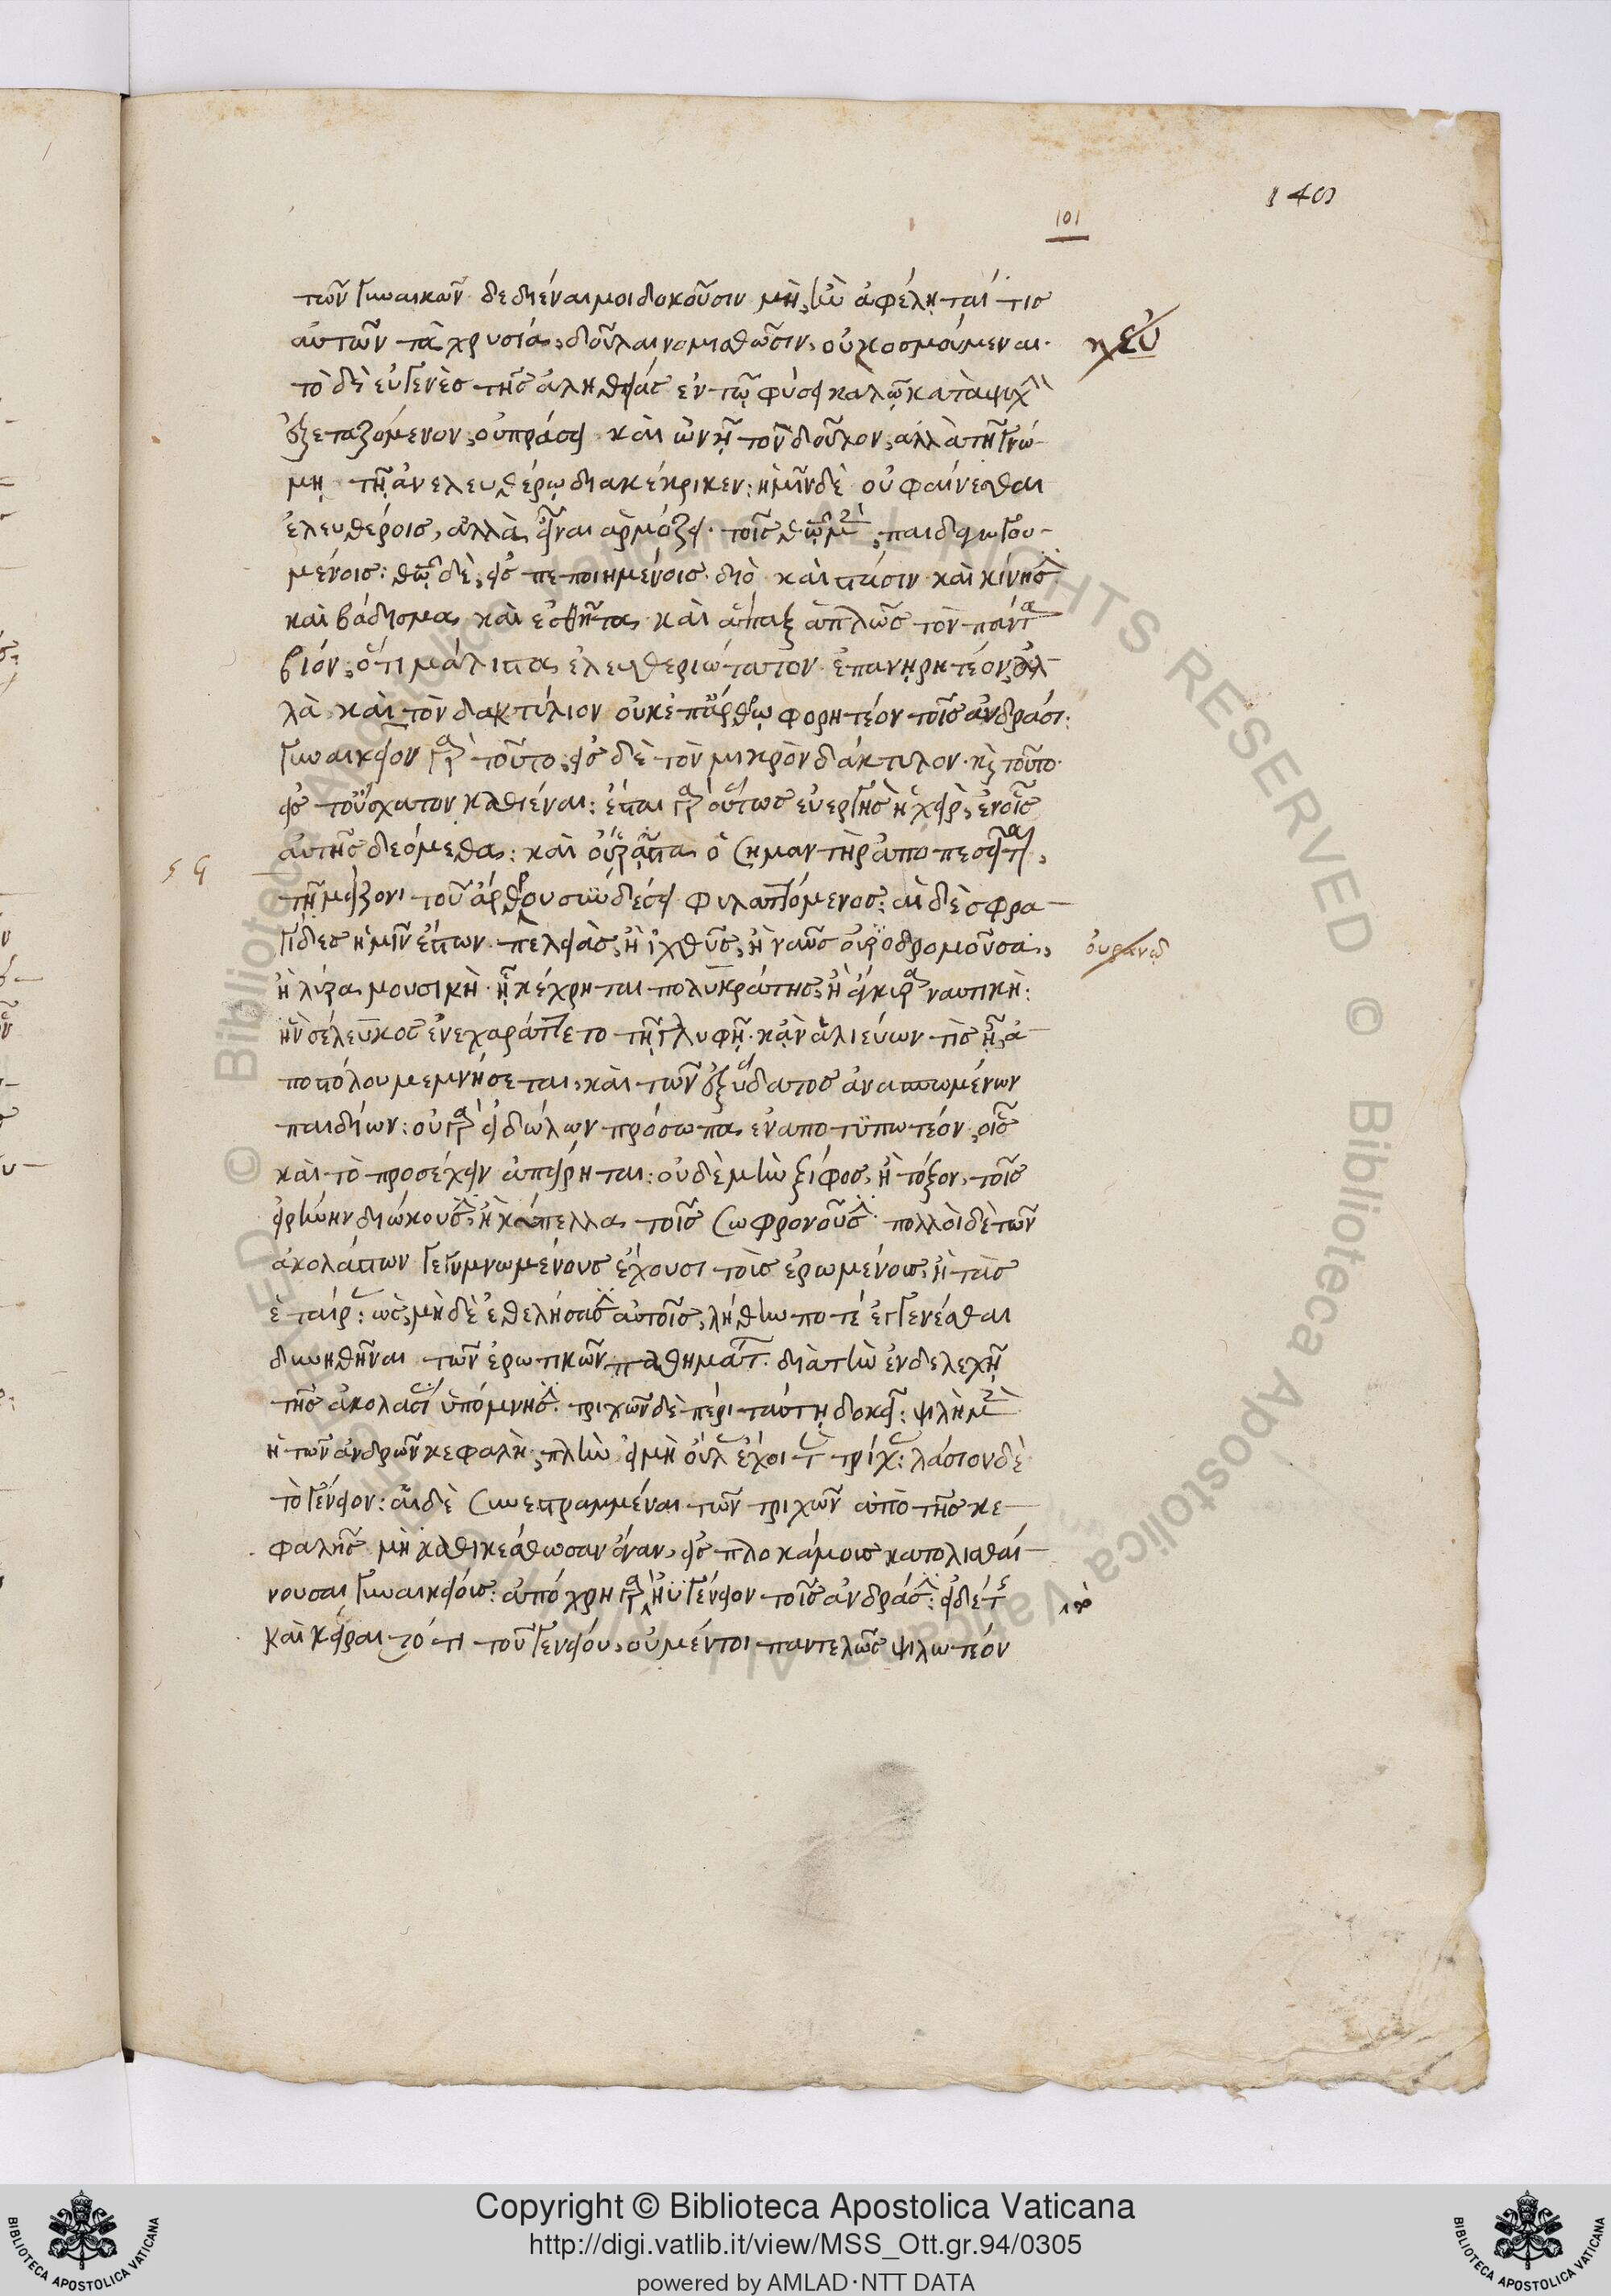 149
101
τῶν γυναικῶν δεδιέναι μοι δοκοῦσιν μὴ, ἢν ἀφέληταί τις
αὐτῶν τὰ χρυσία, δοῦλαι νομισθῶσιν, οὐ κοσμούμεναι.
ευ
τὸ δὲ εὐγενὲς τῆς ἀληθείας ἐν τῷ φύσει καλῷ κατὰ ψυχὴν
ἐξεταζόμενον, οὐ πράσει καὶ ὠνῇ τὸν δοῦλον, ἀλλὰ τῇ γνώ-
μῃ τῇ ἀνελευθέρῳ διακέκρικεν: ἡμῖν δὲ οὐ φαίνεσθαι
ἐλευθέροις, ἀλλὰ εἶναι ἁρμόζει. τοῖς θεῷ μὲν παιδαγωγου-
μένοις: θεῷ δὲ εἰσπεποιημένοις. διὸ καὶ στάσιν καὶ κίνησιν
καὶ βάδισμα καὶ ἐσθῆτα καὶ ἅπαξ ἁπλῶς τὸν πάντα
βίον, ὅτι μάλιστα ἐλευθεριώτατον ἐπανῃρητέον, ἀλ-
λὰ καὶ τὸν δακτύλιον οὐκ ἐπ' ἄρθρῳ φορητέον τοῖς ἀνδράσι:
γυναικεῖον γὰρ τοῦτο, εἰς δὲ τὸν μικρὸν δάκτυλον. καὶ τοῦτον
εἰς τοὔσχατον καθιέναι: ἔσται γὰρ οὕτως εὐεργὴς ἡ χεὶρ, ἐν οἷς
αὐτῆς δεόμεθα: καὶ οὐ ῥᾷστα ὁ σημαντὴρ ἀποπεσεῖται,
τῇ μείζονι τοῦ ἄρθρου συνδέσει φυλαττόμενος: αἱ δὲ σφρα-
γῖδες ἡμῖν ἔστων πελειὰς, ἢ ἰχθῦς, ἢ ναῦς οὐριοδρομοῦσα,
ουρανῶ
ἢ λύρα μουσικὴ. ᾗ κέχρηται πολυκράτης, ἢ ἄγκυρα ναυτικὴ:
ἣν σέλευκος ἐνεχαράττετο τῇ γλυφῇ. κἂν ἁλιεύων τις ᾖ, ἀ-
ποστόλου μεμνήσεται, καὶ τῶν ἐξ ὕδατος ἀνασπωμένων
παιδίων: οὐ γὰρ εἰδώλων πρόσωπα ἐναποτυπωτέον, οἷς
καὶ τὸ προσέχειν ἀπείρηται: οὐδὲ μὴν ξίφος, ἢ τόξον, τοῖς
εἰρήνην διώκουσιν, ἢ κύπελλα τοῖς σωφρονοῦσιν. πολλοὶ δὲ τῶν
ἀκολάστων γεγυμνωμένους ἔχουσι τοὺς ἐρωμένους, ἢ τὰς
ἑταίρας: ὡς μηδὲ ἐθελήσασιν αὐτοῖς, λήθην ποτὲ ἐγγενέσθαι
δυνηθῆναι τῶν ἐρωτικῶν παθημάτων. διὰ τὴν ἐνδελεχῆ
τῆς ἀκολασίας ὑπόμνησιν. τριχῶν δὲ πέρι ταύτῃ δοκεῖ: ψιλὴ μὲν
ἡ τῶν ἀνδρῶν κεφαλὴ, πλὴν εἰ μὴ οὔλας ἔχοι τὰς τρίχας: λάσιον δὲ
τὸ γένειον: αἱ δὲ συνεστραμμέναι τῶν τριχῶν ἀπὸ τῆς κε-
φαλῆς μὴ καθικέσθωσαν ἄγαν, εἰς πλοκάμους κατολισθαί-
νουσαι γυναικείους: ἀπόχρη γὰρ ἠυγένειον τοῖς ἀνδράσιν: εἰ δέ τις
καὶ κείραιτό τι τοῦ γενείου, οὐ μέντοι παντελῶς ψιλωτέον
Copyright © Biblioteca Apostolica Vaticana
http://digi.vatlib.it/view/MSS_Ott.gr.94/0305
powered by AMLAD·NTT DATA